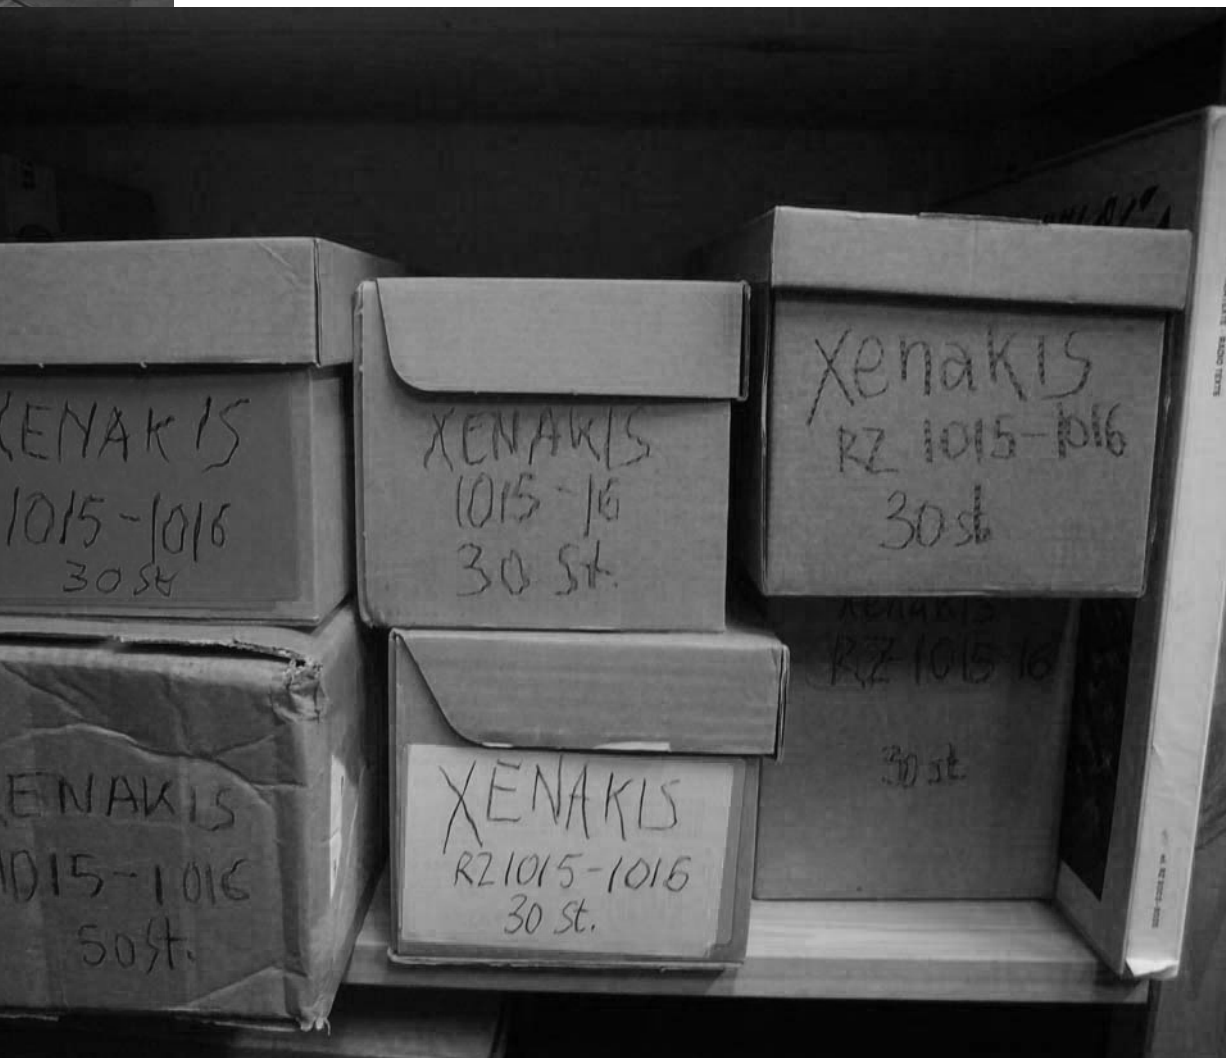 XENAKIS
1015-1016
30 St
XENAKIS
1015-16
30 St.
Xenakis
RZ 1015-1016
30 st
ENAKIS
1015-1016
50 St.
XENAKIS
RZ 1015-1016
30 St.
Xenakis
RZ 1015-16
30 st
RADIO TEXTS